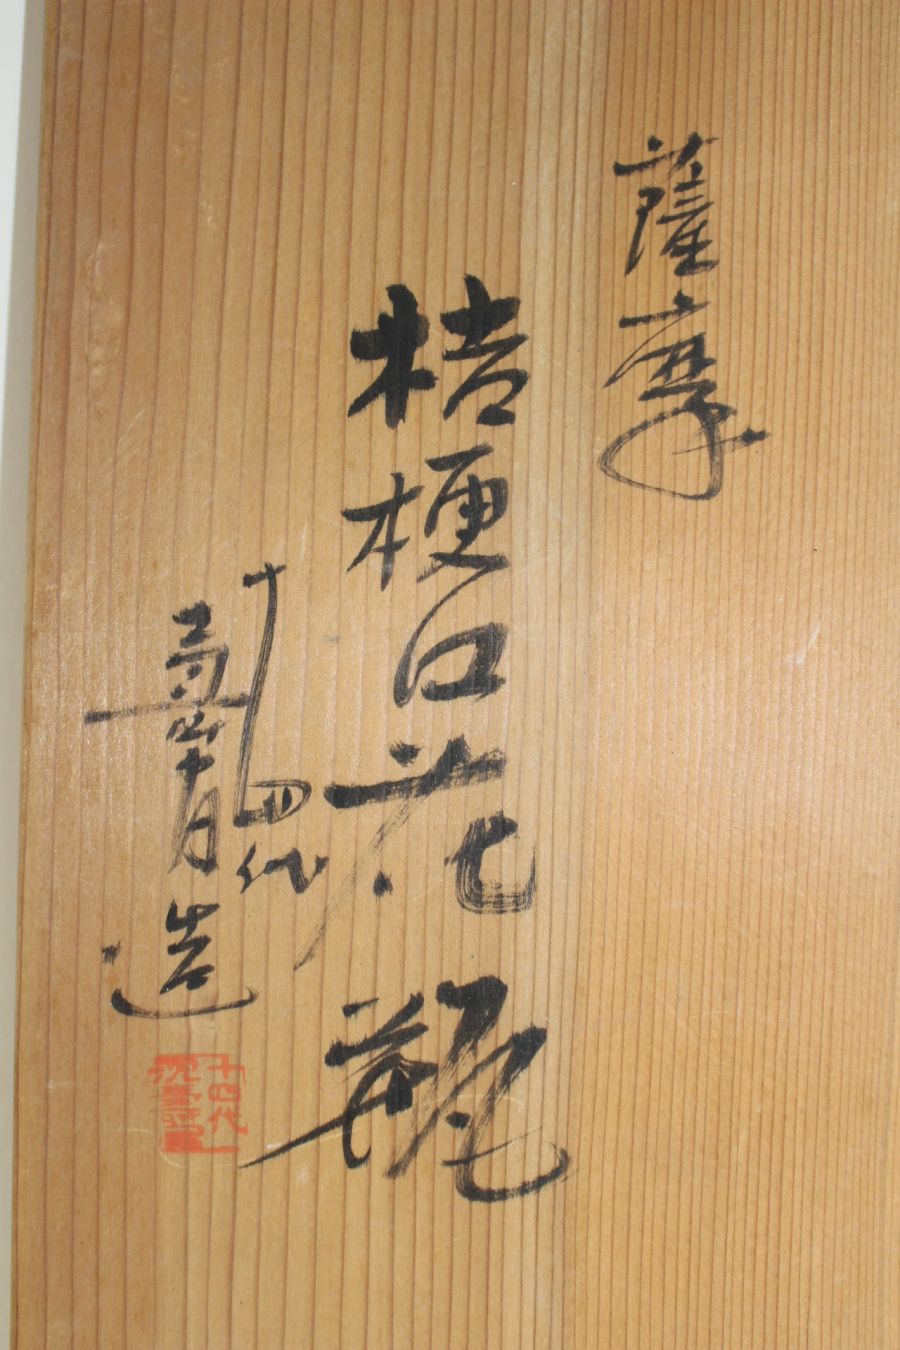 薩摩
桔梗口花瓶
十四代
壽官造
十四代
沈壽官